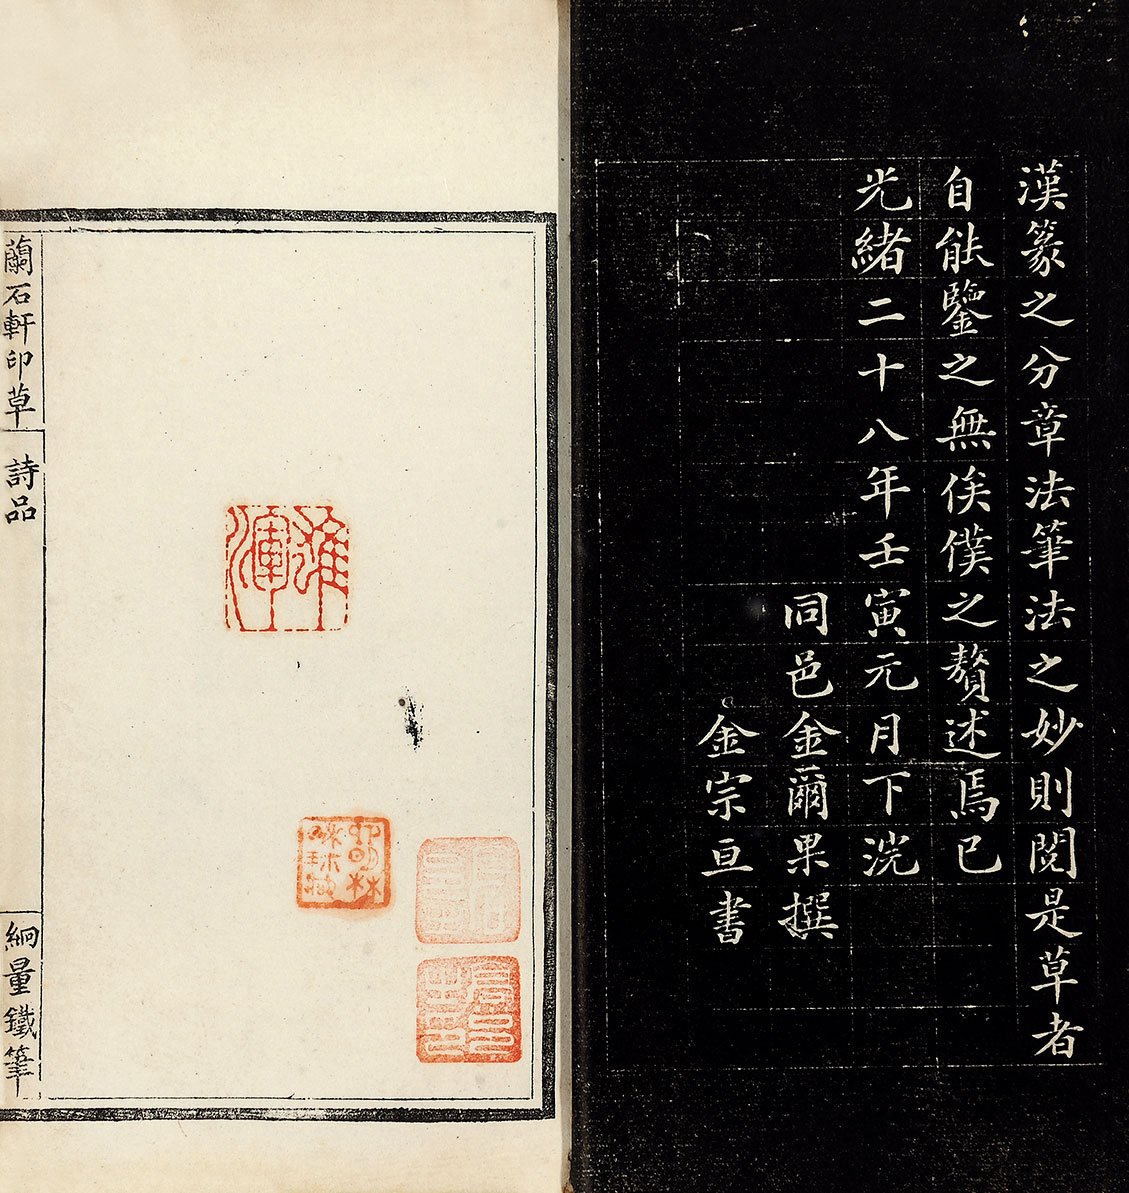 漢篆之分章法筆法之妙則閱是草者
自能鑒之無俟僕之贅述焉已
光緒二十八年壬寅元月下浣
同邑金爾果撰
金宗亘書
雄渾
蘭石軒印草
詩品
絅量鐵筆